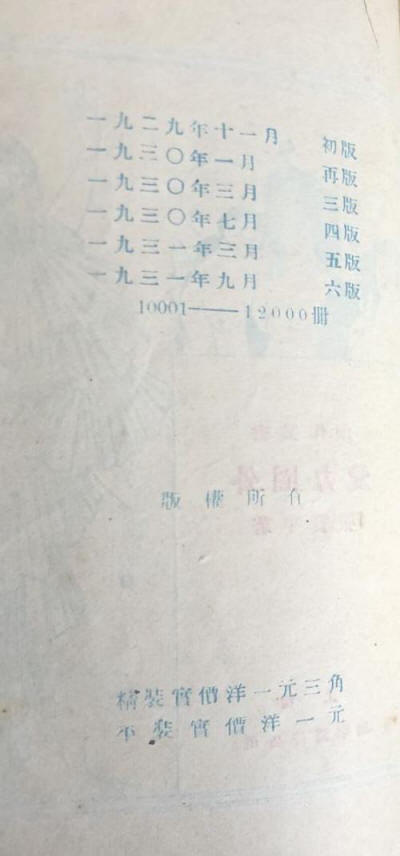 一九二九年十一月 初版
一九三〇年一月 再版
一九三〇年三月 三版
一九三〇年七月 四版
一九三一年三月 五版
一九三一年九月 六版
10001——12000冊
版權所有
精裝實價洋一元三角
平裝實價洋一元